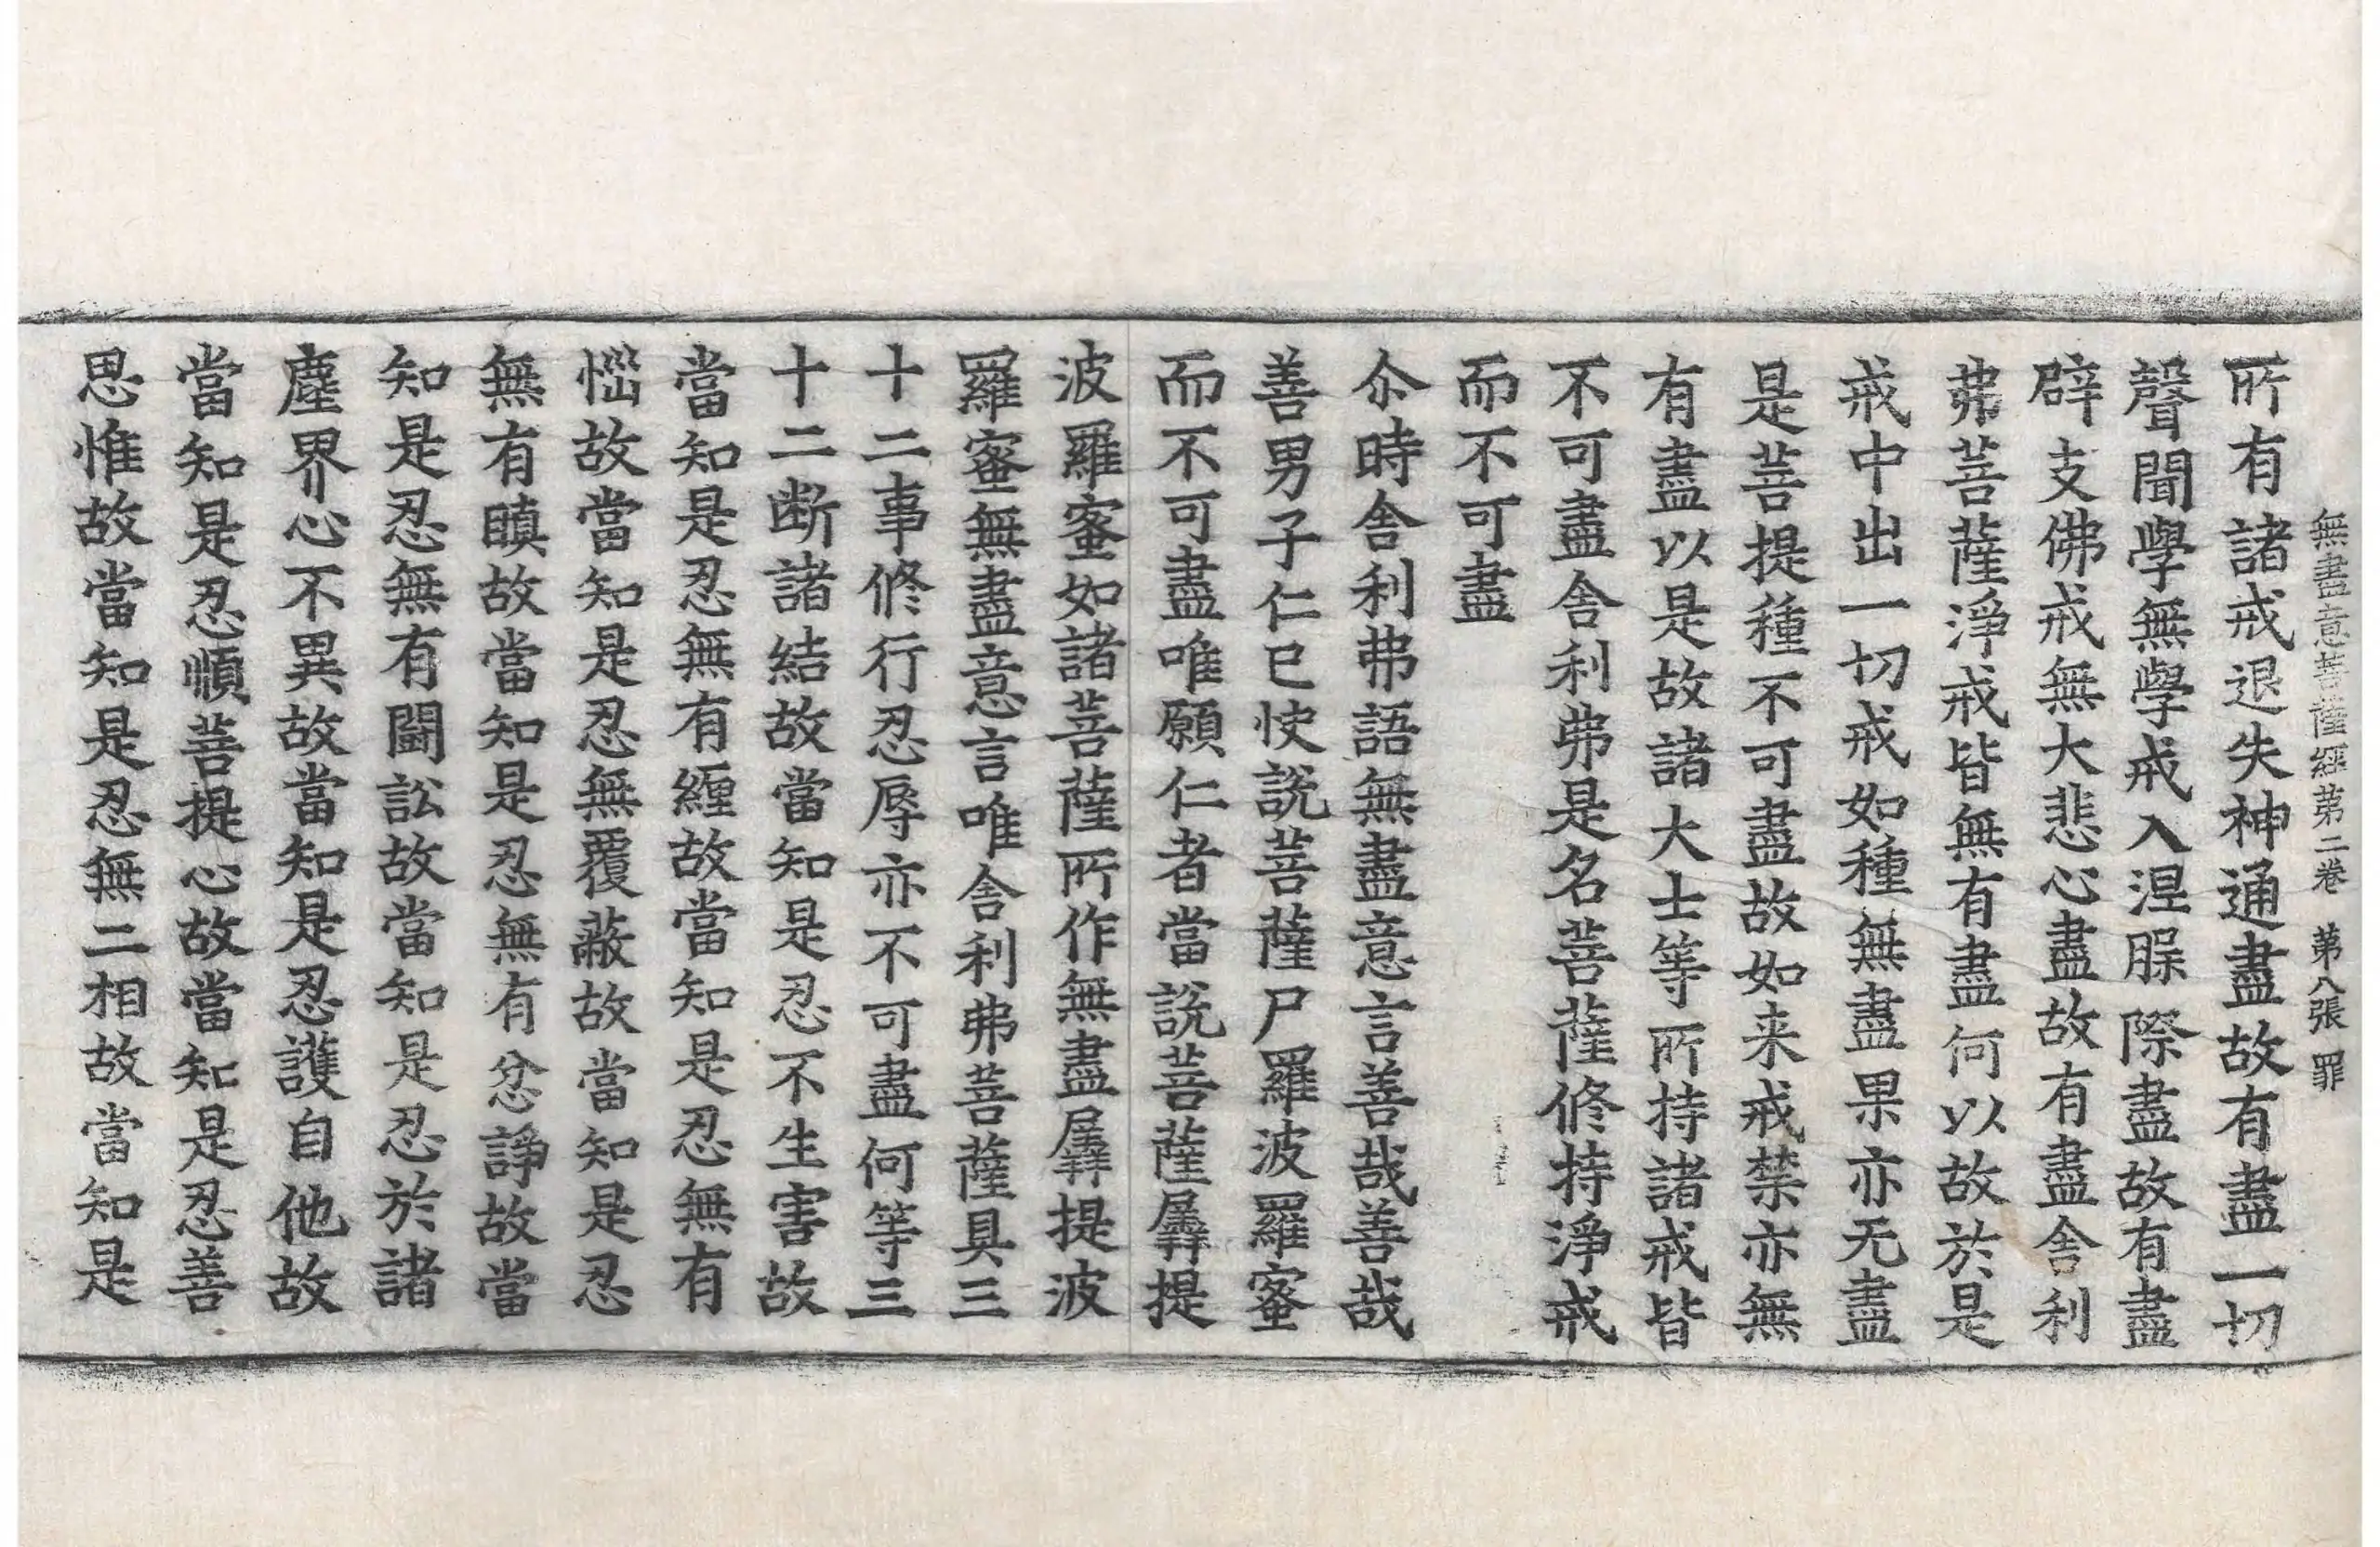 無盡意菩薩經第二卷 第八張 罪
所有諸戒退失神通盡故有盡一切
聲聞學無學戒入涅脵際盡故有盡
辟支佛戒無大悲心盡故有盡舍利
弗菩薩淨戒皆無有盡何以故於是
戒中出一切戒如種無盡果亦无盡
是菩提種不可盡故如来戒禁亦無
有盡以是故諸大士等所持諸戒皆
不可盡舍利弗是名菩薩修持淨戒
而不可盡
尒時舍利弗語無盡意言善哉善哉
善男子仁已快說菩薩尸羅波羅蜜
而不可盡唯願仁者當說菩薩羼提
波羅蜜如諸菩薩所作無盡羼提波
羅蜜無盡意言唯舍利弗菩薩具三
十二事修行忍辱亦不可盡何等三
十二断諸結故當知是忍不生害故
當知是忍無有纏故當知是忍無有
惱故當知是忍無覆蔽故當知是忍
無有瞋故當知是忍無有忿諍故當
知是忍無有鬪訟故當知是忍於諸
塵界心不異故當知是忍護自他故
當知是忍順菩提心故當知是忍善
思惟故當知是忍無二相故當知是